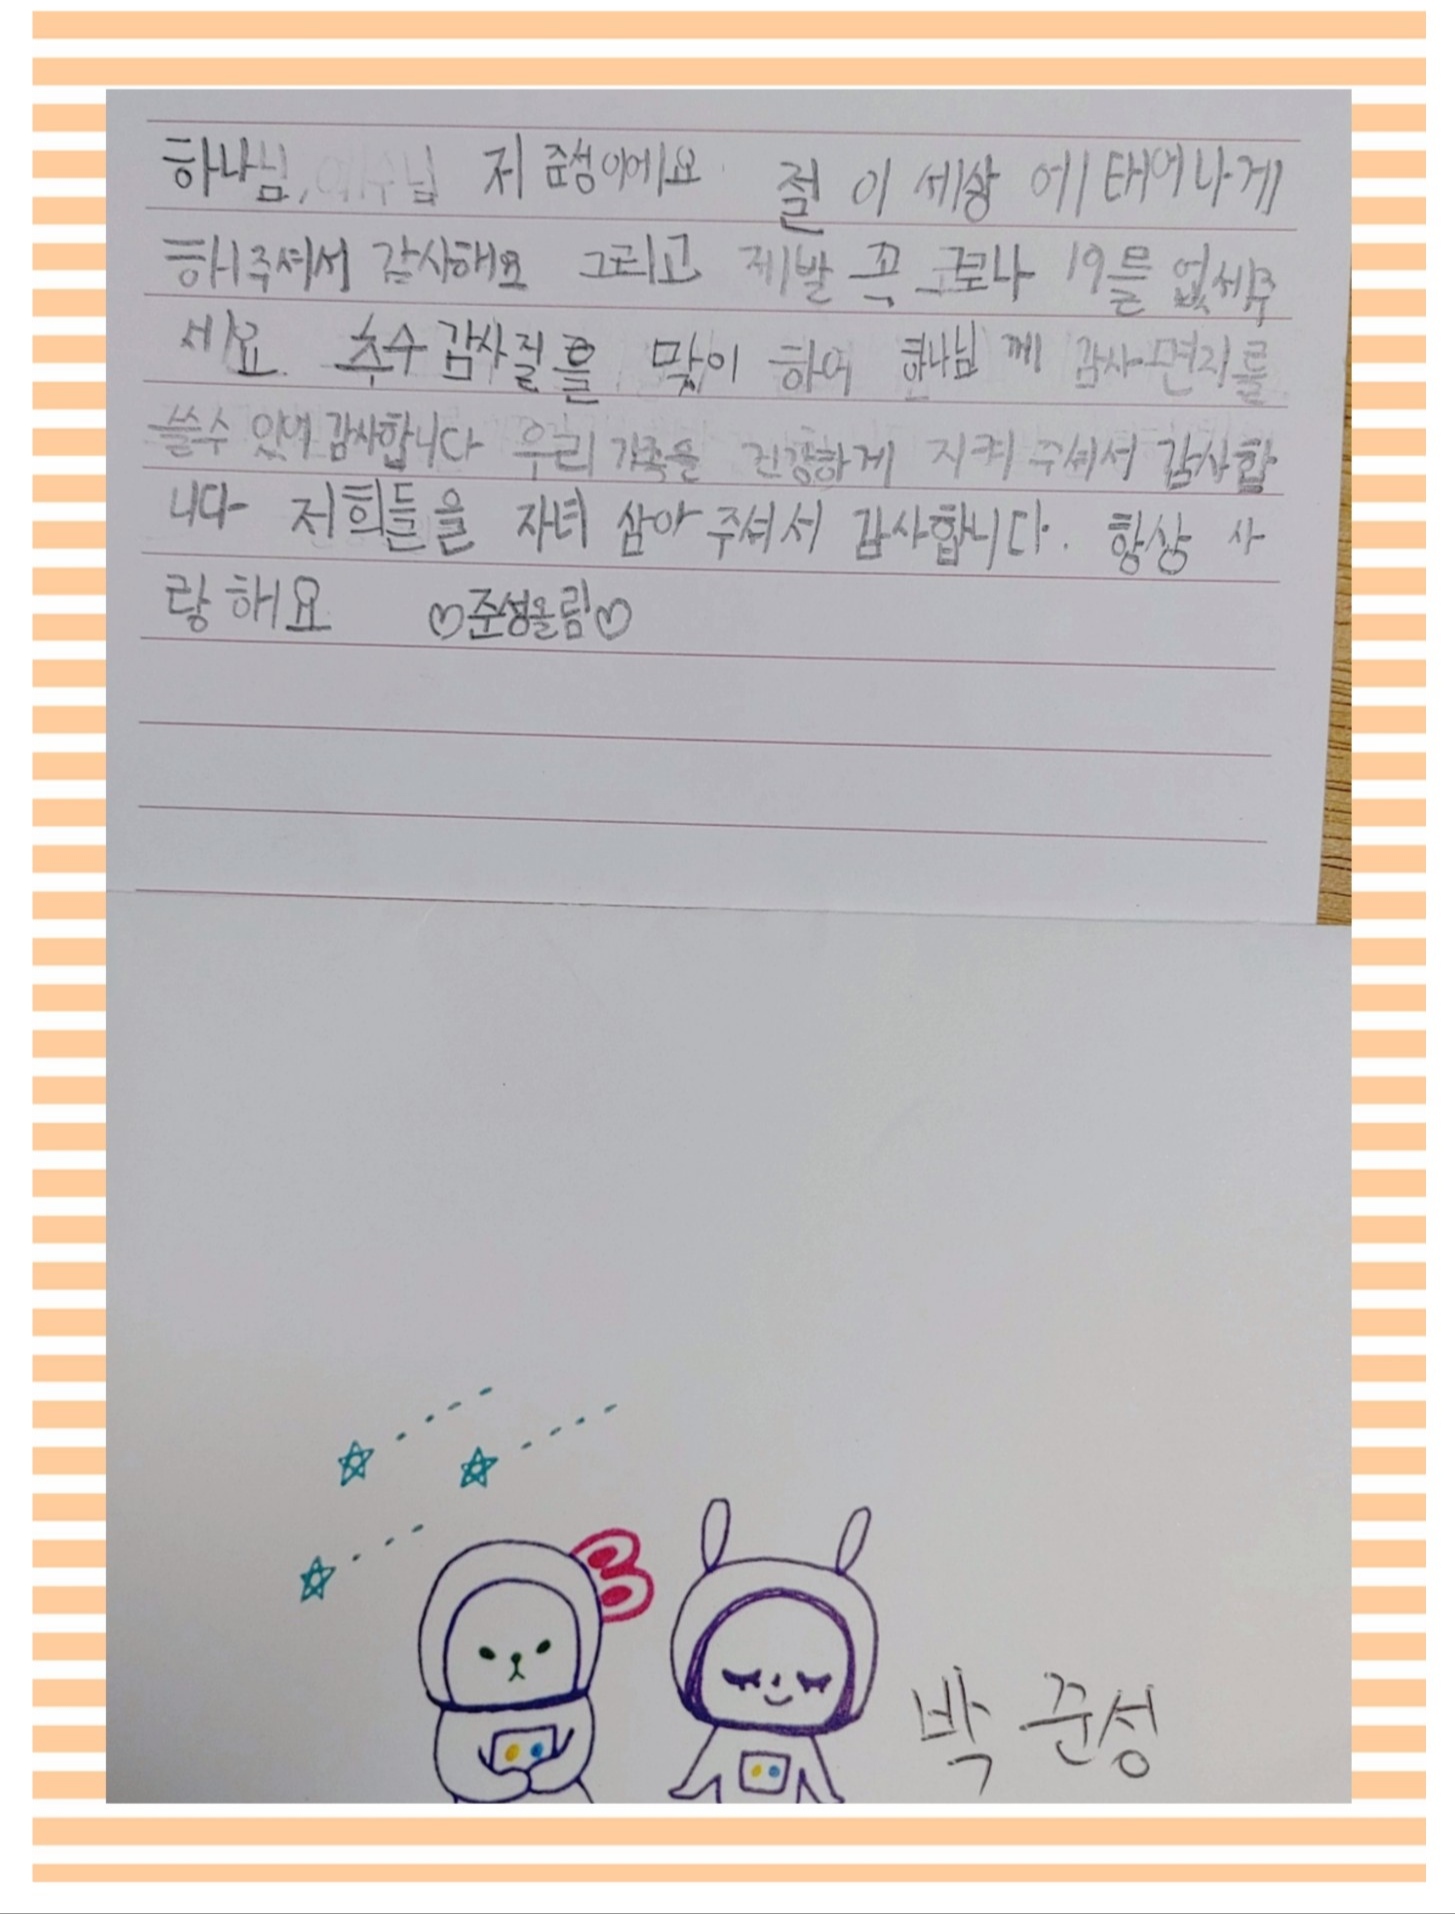 하나님, 예수님 저 준성이에요 절 이 세상 에 태어나게
해주셔서 감사해요 그리고 제발 꼭 코로나 19를 없세주
세요. 추수감사절을 맞이 하여 하나님 께 감사 편지를
쓸수 있어 감사합니다 우리 가족을 건강하게 지켜 주셔서 감사합
니다 저희들을 자녀 삼아 주셔서 감사합니다. 항상 사
랑해요 ♡준성올림♡
박준성